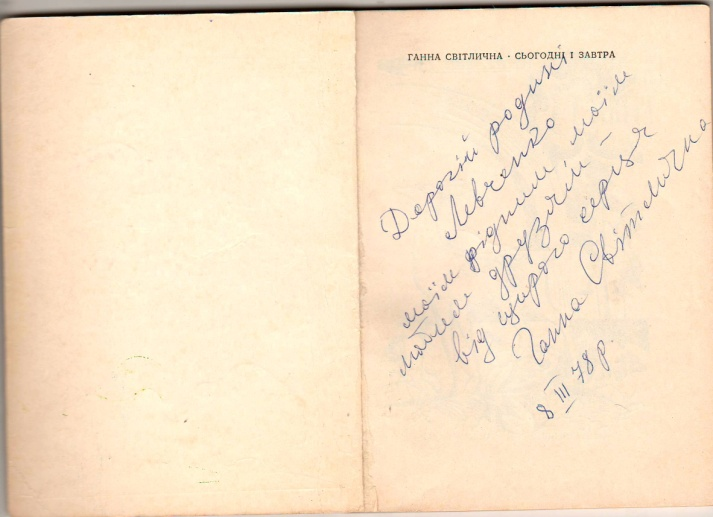 ГАННА СВІТЛИЧНА · СЬОГОДНІ І ЗАВТРА
Дорогій родині
Левченко
моїм рідним моїм
любим друзям –
від щирого серця
Ганна Світлична
8 III 78 р.